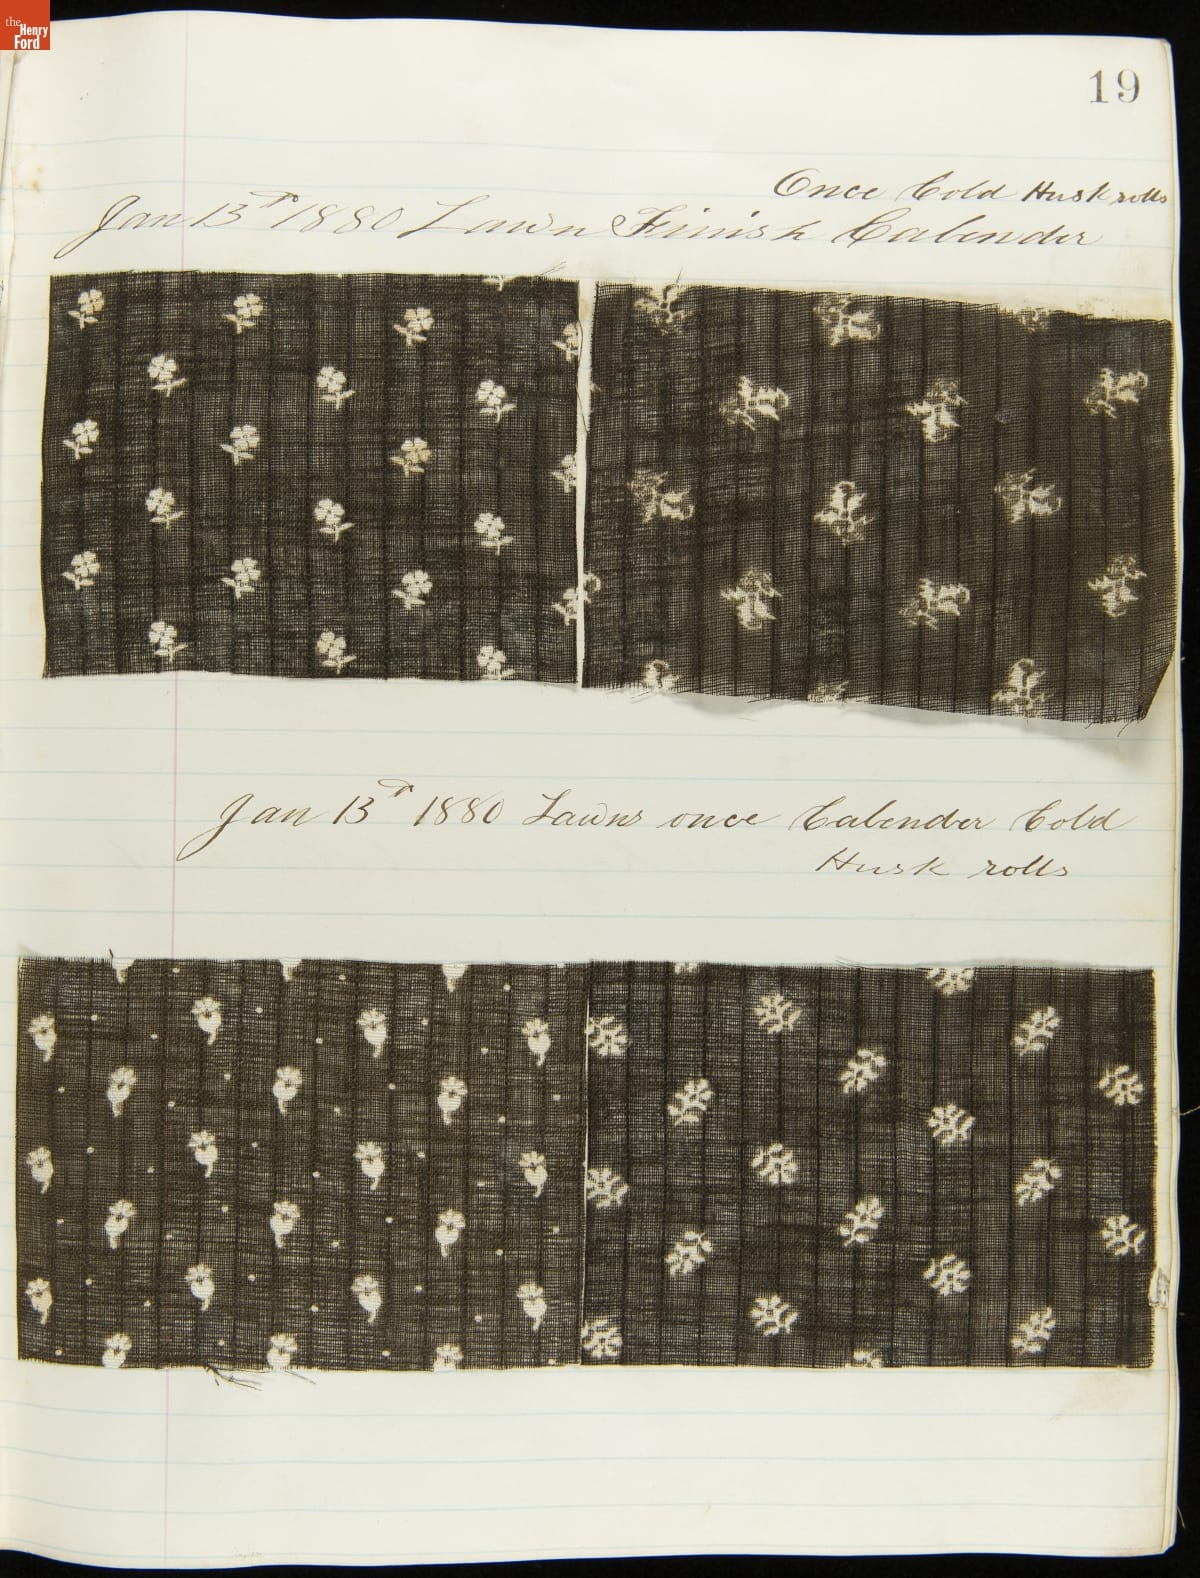 the
Henry
Ford
19
Once Cold Husk rolls
Jan 13th 1880 Lawn Finish Calender
Jan 13th 1880 Lawns once Calender Cold
Husk rolls